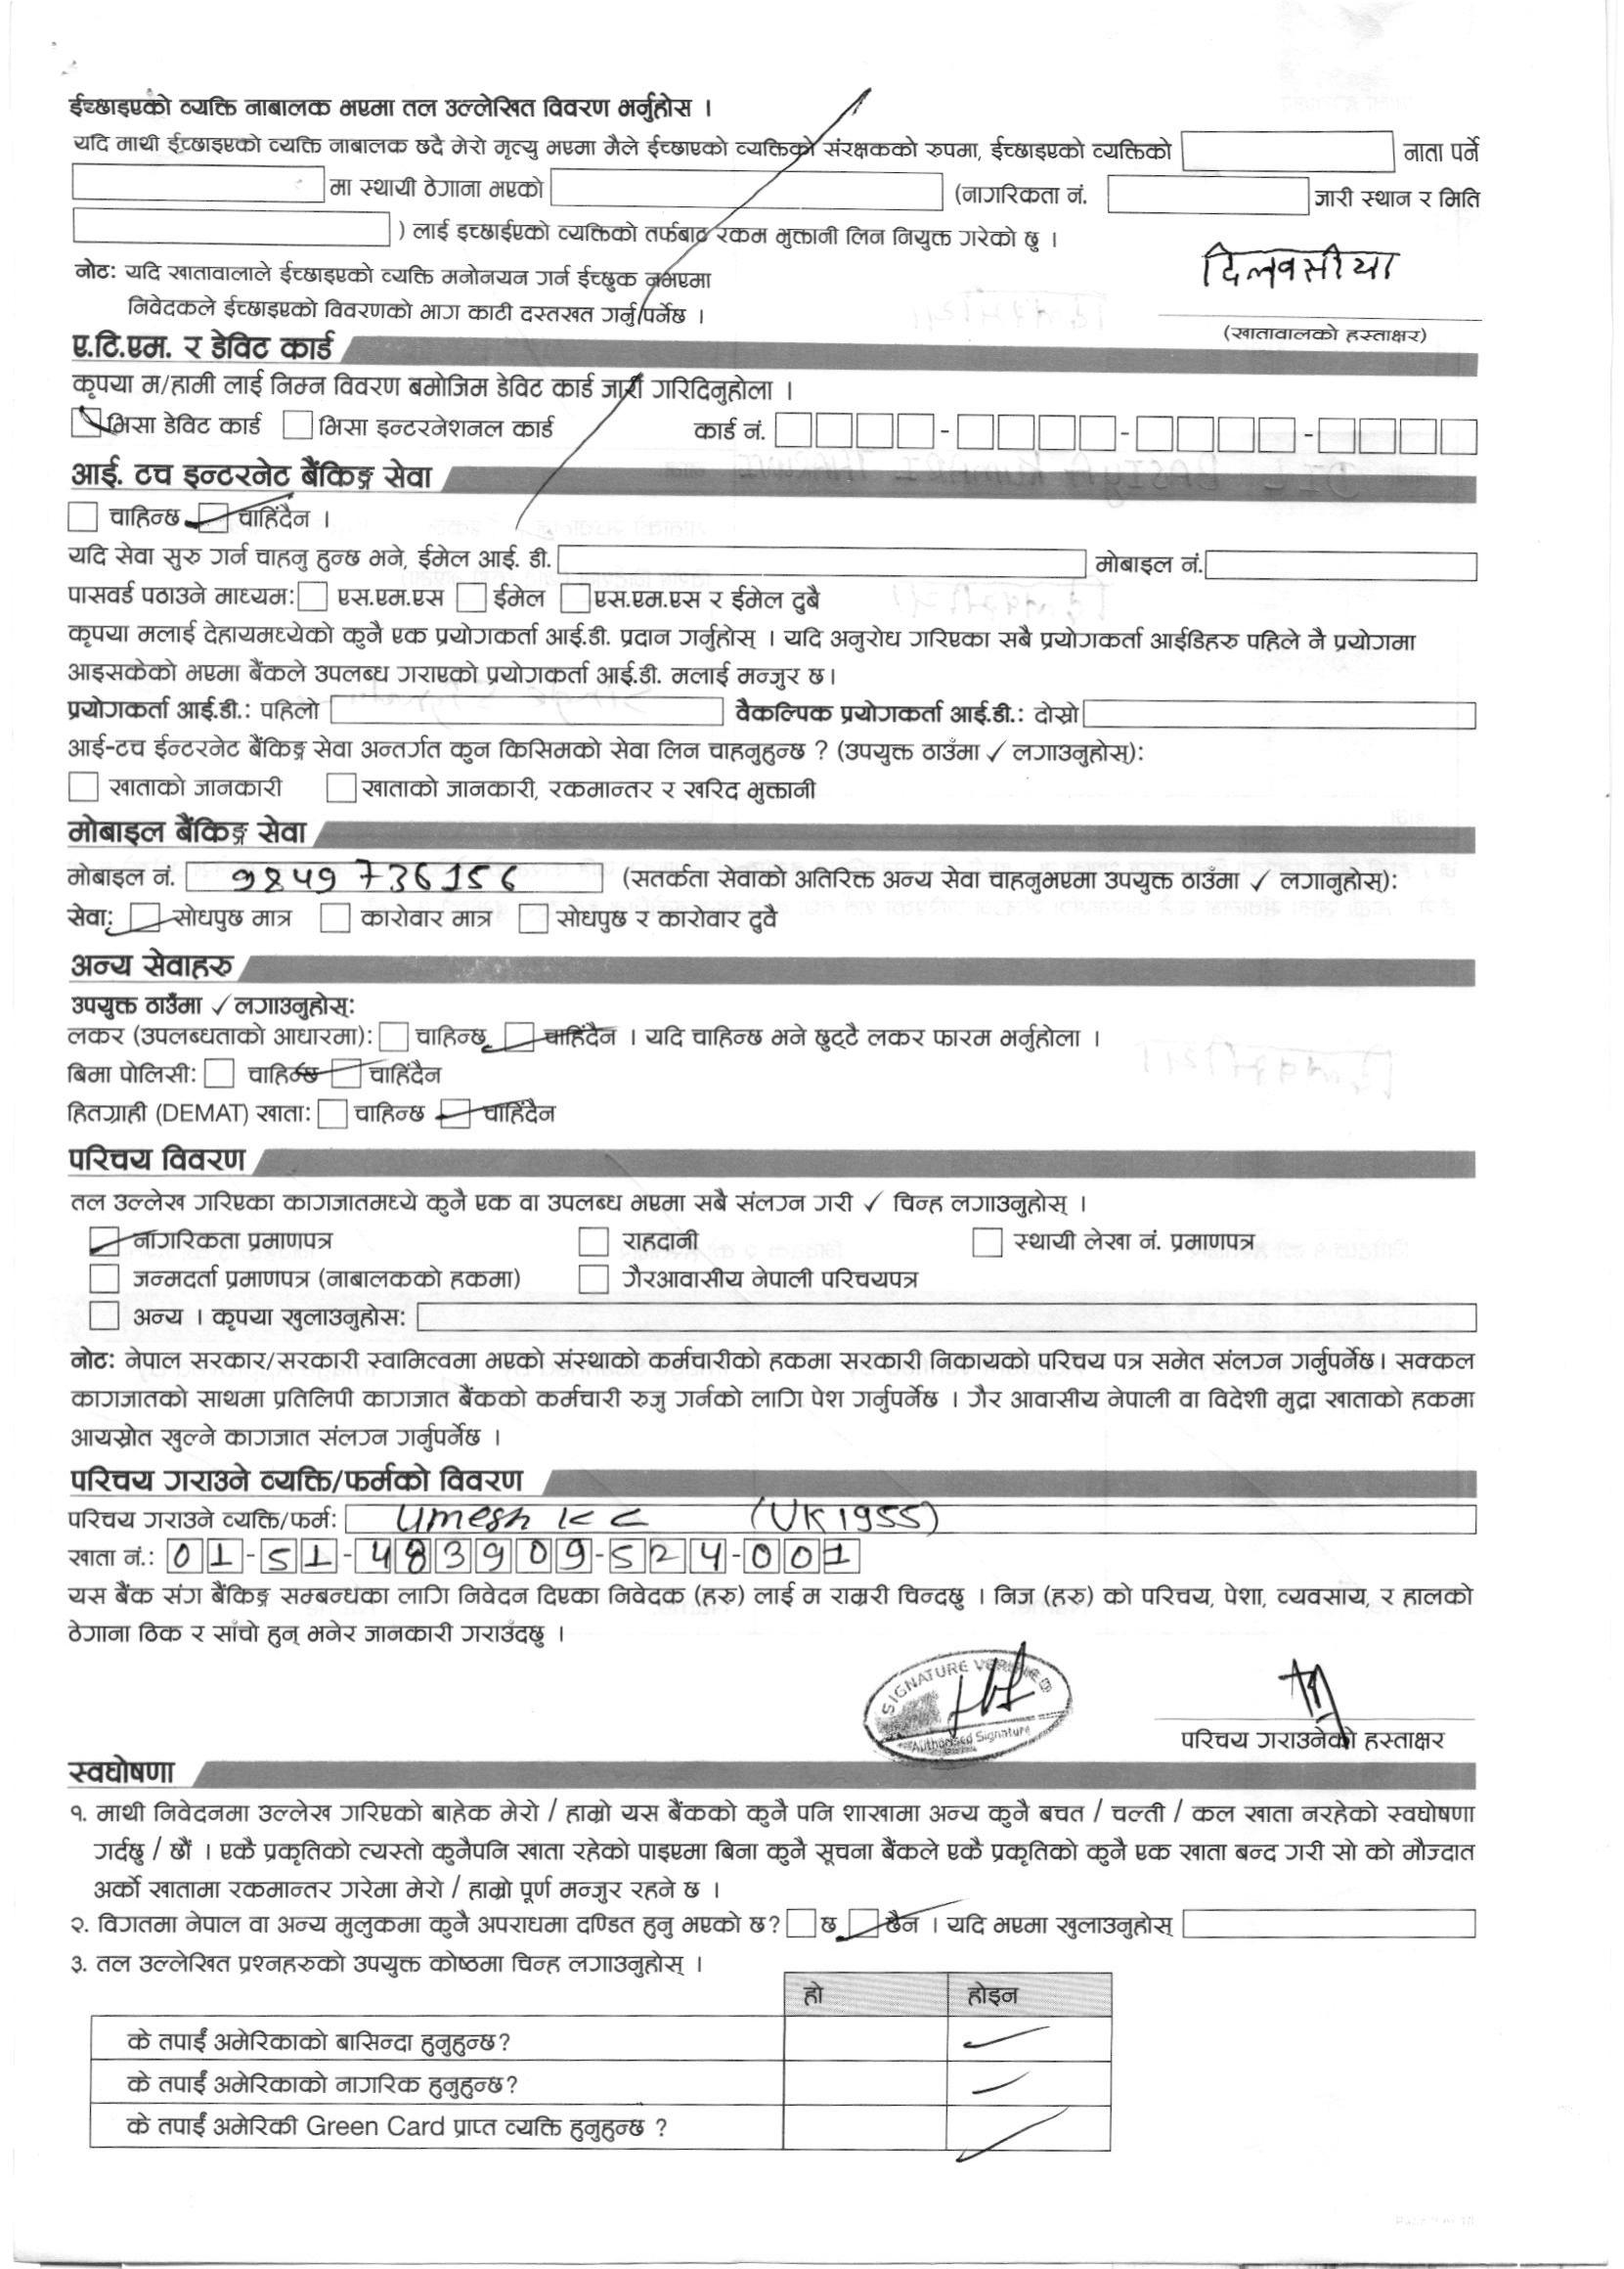 ईच्छाइएको व्यक्ति नाबालक भएमा तल उल्लेखित विवरण भर्नुहोस ।
यदि माथी ईच्छाइएको व्यक्ति नाबालक छदै मेरो मृत्यु भएमा मैले ईच्छाएको व्यक्तिको संरक्षकको रुपमा, ईच्छाइएको व्यक्तिको नाता पर्ने
मा स्थायी ठेगाना भएको (नागरिकता नं. जारी स्थान र मिति
) लाई इच्छाईएको व्यक्तिको तर्फबाट रकम भुक्तानी लिन नियुक्त गरेको छु ।
दिलवसीया
नोट: यदि खातावालाले ईच्छाइएको व्यक्ति मनोनयन गर्न ईच्छुक नभएमा
निवेदकले ईच्छाइएको विवरणको भाग काटी दस्तखत गर्नु पर्नेछ ।
(खातावालको हस्ताक्षर)
ए.टि.एम. र डेविट कार्ड
कृपया म/हामी लाई निम्न विवरण बमोजिम डेविट कार्ड जारी गरिदिनुहोला ।
भिसा डेविट कार्ड भिसा इन्टरनेशनल कार्ड कार्ड नं. - - -
आई. टच इन्टरनेट बैंकिङ्ग सेवा
चाहिन्छ चाहिंदैन ।
यदि सेवा सुरु गर्न चाहनु हुन्छ भने, ईमेल आई. डी. मोबाइल नं.
पासवर्ड पठाउने माध्यम: एस.एम.एस ईमेल एस.एम.एस र ईमेल दुबै
कृपया मलाई देहायमध्येको कुनै एक प्रयोगकर्ता आई.डी. प्रदान गर्नुहोस् । यदि अनुरोध गरिएका सबै प्रयोगकर्ता आईडिहरु पहिले नै प्रयोगमा
आइसकेको भएमा बैंकले उपलब्ध गराएको प्रयोगकर्ता आई.डी. मलाई मन्जुर छ।
प्रयोगकर्ता आई.डी.: पहिलो वैकल्पिक प्रयोगकर्ता आई.डी.: दोस्रो
आई-टच ईन्टरनेट बैंकिङ्ग सेवा अन्तर्गत कुन किसिमको सेवा लिन चाहनुहुन्छ ? (उपयुक्त ठाउँमा ✓ लगाउनुहोस्):
खाताको जानकारी खाताको जानकारी, रकमान्तर र खरिद भुक्तानी
मोबाइल बैंकिङ्ग सेवा
मोबाइल नं. 9849736156 (सतर्कता सेवाको अतिरिक्त अन्य सेवा चाहनुभएमा उपयुक्त ठाउँमा ✓ लगानुहोस्):
सेवा: सोधपुछ मात्र कारोवार मात्र सोधपुछ र कारोवार दुवै
अन्य सेवाहरु
उपयुक्त ठाउँमा ✓ लगाउनुहोस्:
लकर (उपलब्धताको आधारमा): चाहिन्छ चाहिंदैन । यदि चाहिन्छ भने छुट्टै लकर फारम भर्नुहोला ।
बिमा पोलिसी: चाहिन्छ चाहिंदैन
हितग्राही (DEMAT) खाता: चाहिन्छ चाहिंदैन
परिचय विवरण
तल उल्लेख गरिएका कागजातमध्ये कुनै एक वा उपलब्ध भएमा सबै संलग्न गरी ✓ चिन्ह लगाउनुहोस् ।
नागरिकता प्रमाणपत्र राहदानी स्थायी लेखा नं. प्रमाणपत्र
जन्मदर्ता प्रमाणपत्र (नाबालकको हकमा) गैरआवासीय नेपाली परिचयपत्र
अन्य । कृपया खुलाउनुहोस:
नोट: नेपाल सरकार/सरकारी स्वामित्वमा भएको संस्थाको कर्मचारीको हकमा सरकारी निकायको परिचय पत्र समेत संलग्न गर्नुपर्नेछ। सक्कल
कागजातको साथमा प्रतिलिपी कागजात बैंकको कर्मचारी रुजु गर्नको लागि पेश गर्नुपर्नेछ । गैर आवासीय नेपाली वा विदेशी मुद्रा खाताको हकमा
आयस्रोत खुल्ने कागजात संलग्न गर्नुपर्नेछ ।
परिचय गराउने व्यक्ति/फर्मको विवरण
परिचय गराउने व्यक्ति/फर्म: Umesh K C (UK1955)
खाता नं.: 01-51-483909-524-001
यस बैंक संग बैंकिङ्ग सम्बन्धका लागि निवेदन दिएका निवेदक (हरु) लाई म राम्ररी चिन्दछु । निज (हरु) को परिचय, पेशा, व्यवसाय, र हालको
ठेगाना ठिक र साँचो हुन् भनेर जानकारी गराउँदछु ।
SIGNATURE VERIFIED
Authorised Signature
परिचय गराउनेको हस्ताक्षर
स्वघोषणा
१. माथी निवेदनमा उल्लेख गरिएको बाहेक मेरो / हाम्रो यस बैंकको कुनै पनि शाखामा अन्य कुनै बचत / चल्ती / कल खाता नरहेको स्वघोषणा
गर्दछु / छौं । एकै प्रकृतिको त्यस्तो कुनैपनि खाता रहेको पाइएमा बिना कुनै सूचना बैंकले एकै प्रकृतिको कुनै एक खाता बन्द गरी सो को मौज्दात
अर्को खातामा रकमान्तर गरेमा मेरो / हाम्रो पूर्ण मन्जुर रहने छ ।
२. विगतमा नेपाल वा अन्य मुलुकमा कुनै अपराधमा दण्डित हुनु भएको छ? छ छैन । यदि भएमा खुलाउनुहोस्
३. तल उल्लेखित प्रश्नहरुको उपयुक्त कोष्ठमा चिन्ह लगाउनुहोस् ।
हो होइन
के तपाईं अमेरिकाको बासिन्दा हुनुहुन्छ?
के तपाईं अमेरिकाको नागरिक हुनुहुन्छ?
के तपाईं अमेरिकी Green Card प्राप्त व्यक्ति हुनुहुन्छ ?